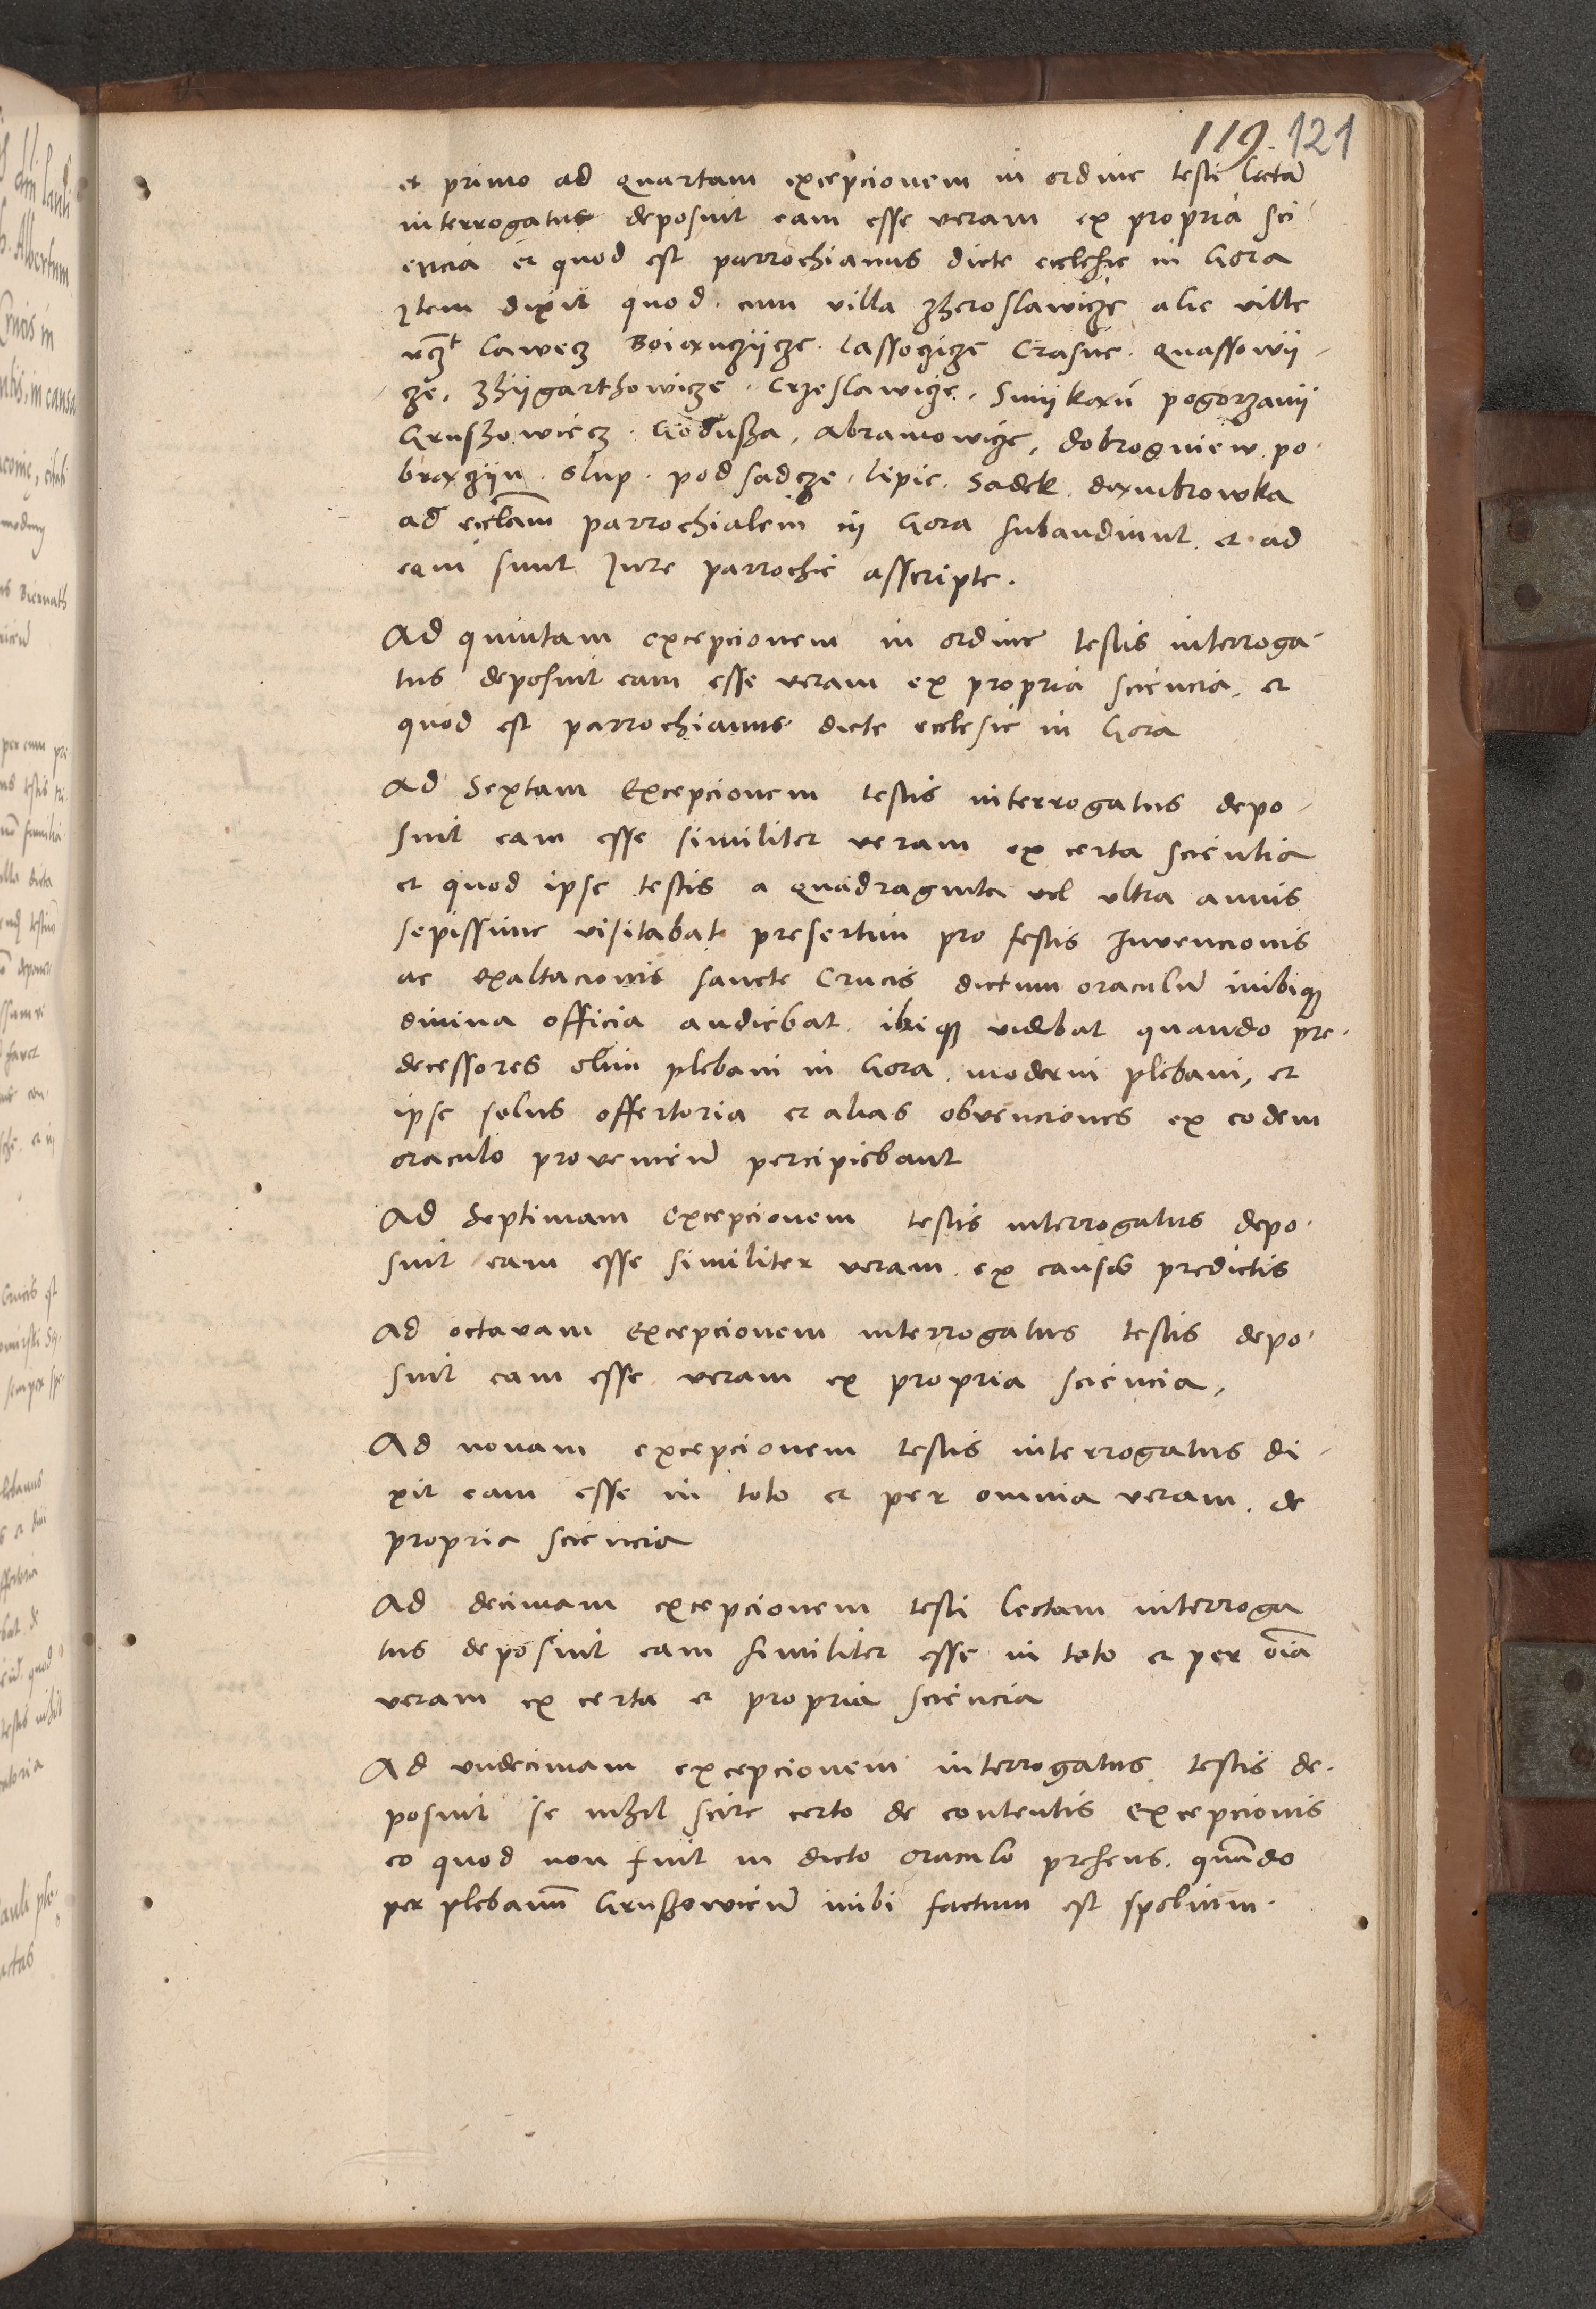 119. 121
et primo ad quartam excepcionem in ordine testi lectā
interrogatus deposuit eam esse veram ex propria sci
encia et quod est parrochianus dicte ecclesie in Gora
Item dixit quod cum villa Zheroslawicze alie ville
Lawecz Boianczijcze. Lassoczicze Crasne. Quassowij
cze. Zhijgarthowicze. Crzeslawicze. Smijkan pogorzanij
Gruszowiecz. Godusza, Abramowicze, dobrogniew. po
braczijn. Slup. podsadcze. lipie. Sadek. dambrowka
ad ecclam parrochialem in Gora subaudiunt. et ad
eam sunt Jure parrochie asscripte.
Ad quintam excepcionem in ordine testis interroga
tus deposuit eam esse veram ex propria sciencia, et
quod est parrochianus dicte ecclesie in Gora
Ad Sextam Excepcionem testis interrogatus depo
suit eam esse similiter veram ex certa scientia
et quod ipse testis a quadraginta vel vltra annis
sepissime visitabat presertim pro festis Invencionis
ac exaltacionis sancte Crucis dictum oraculū inibiq
divina officia audiebat. ibiq videbat quando pre
decessores olim plebani in Gora. moderni plebani, et
ipse solus offertoria et alias obvenciones ex eodem
oraculo proveniēn percipiebant
Ad Septimam excepcionem testis interrogatus depo
suit eam esse similiter veram. ex causis predictis
Ad octavam excepcionem interrogatus testis depo
suit eam esse veram ex propria sciencia,
Ad nonam excepcionem testis interrogatus di
xit eam esse in toto et per omnia veram. de
propria sciencia
Ad decimam excepcionem testi lectam interroga
tus deposuit eam similiter esse in toto et per oīa
veram ex certa et propria sciencia
Ad vndecimam excepcionem interrogatus testis de
posuit se nihil scire certo de contentis excepcionis
eo quod non fuit in dicto oraculo presens. quando
per plebanū Gruszowiēn inibi factum est spolium.